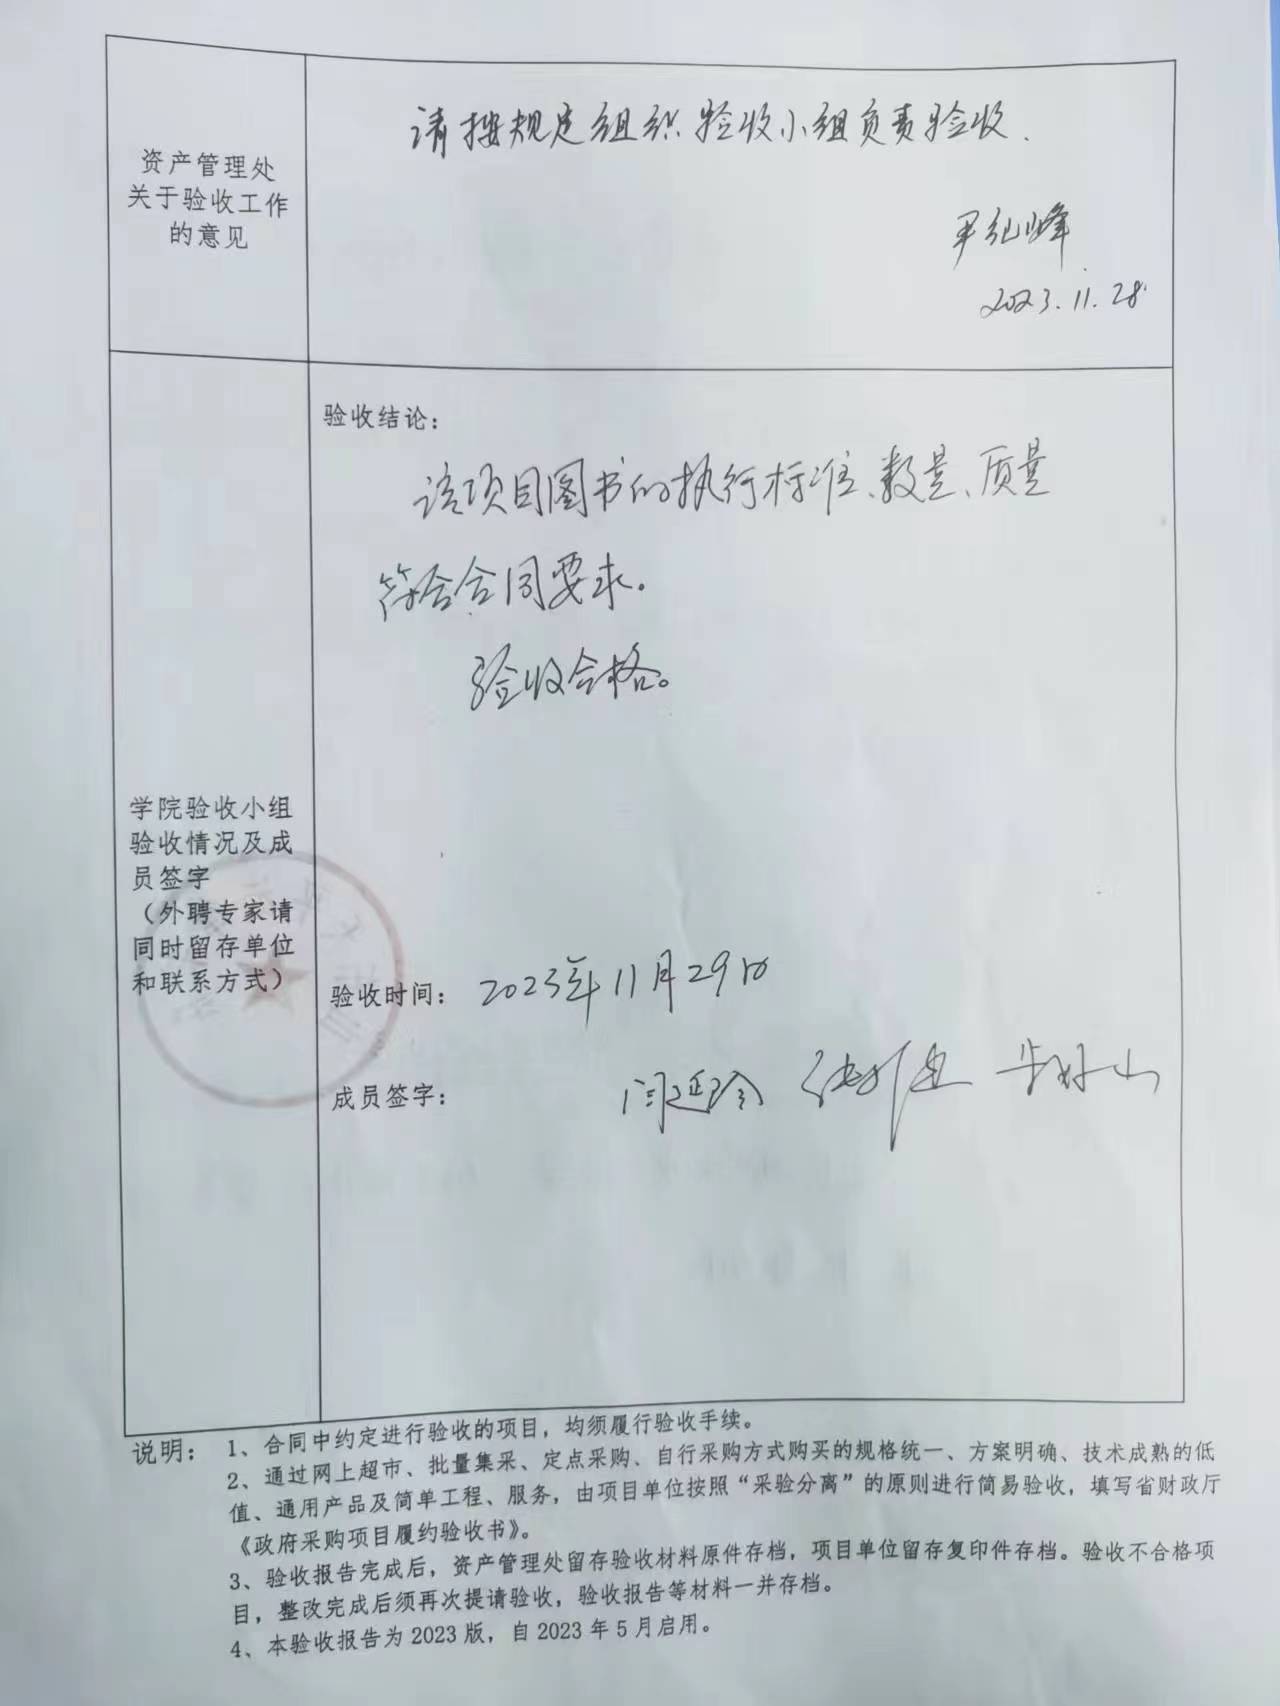 资产管理处
关于验收工作
的意见
请按规定组织验收小组负责验收.
尹纪峰
2023.11.28
验收结论：
该项目图书的执行标准、数量、质量
符合合同要求。
验收合格。
学院验收小组
验收情况及成
员签字
（外聘专家请
同时留存单位
和联系方式）
验收时间： 2023年11月29日
成员签字： 闫延玲
说明： 1、合同中约定进行验收的项目，均须履行验收手续。
2、通过网上超市、批量集采、定点采购、自行采购方式购买的规格统一、方案明确、技术成熟的低
值、通用产品及简单工程、服务，由项目单位按照“采验分离”的原则进行简易验收，填写省财政厅
《政府采购项目履约验收书》。
3、验收报告完成后，资产管理处留存验收材料原件存档，项目单位留存复印件存档。验收不合格项
目，整改完成后须再次提请验收，验收报告等材料一并存档。
4、本验收报告为2023版，自2023年5月启用。